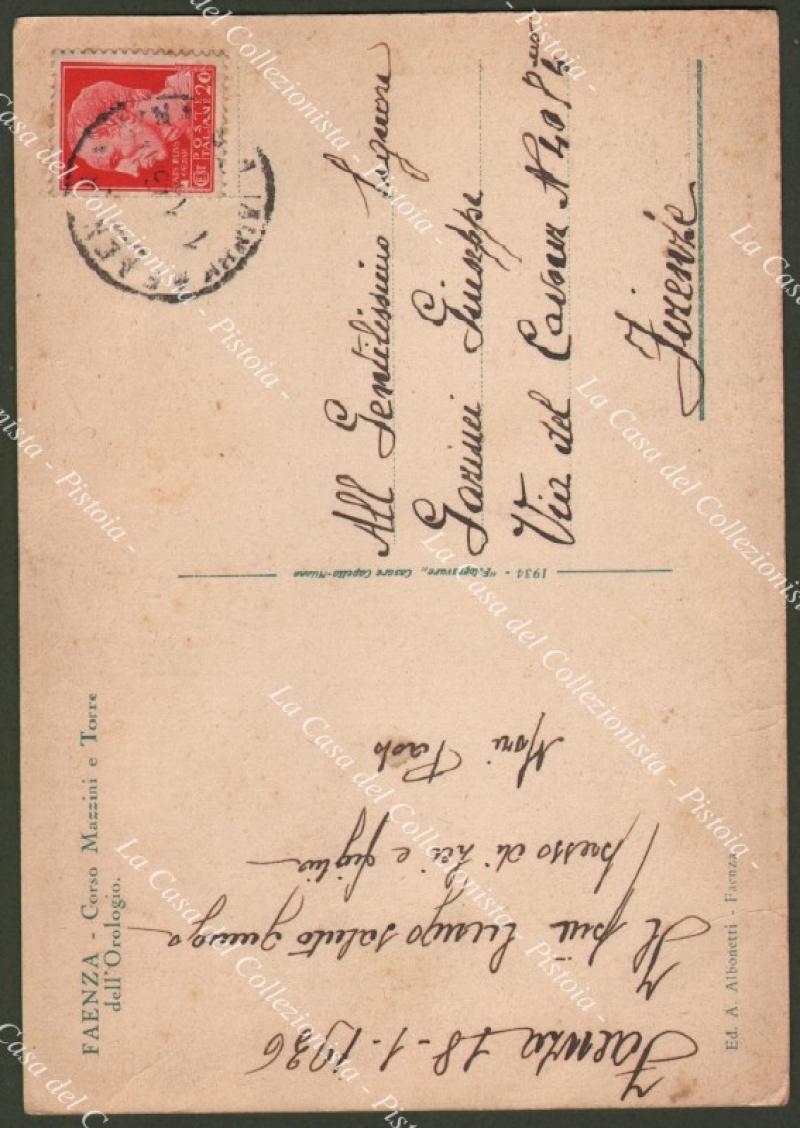 FAENZA - Corso Mazzini e Torre
dell'Orologio.
Faenza 18-1-1936
Il più lungo saluto giunga
presso di Lei e figlio
Mori Paolo
Ed. A. Albonetti - Faenza
1934 - "Fotogravure„ Cesare Capello-Milano
POSTE
ITALIANE
20
CENT
All Gentilissimo Signore
Garinei Giuseppe
Via del N 40 P
Firenze
La Casa del Collezionista - Pistoia -